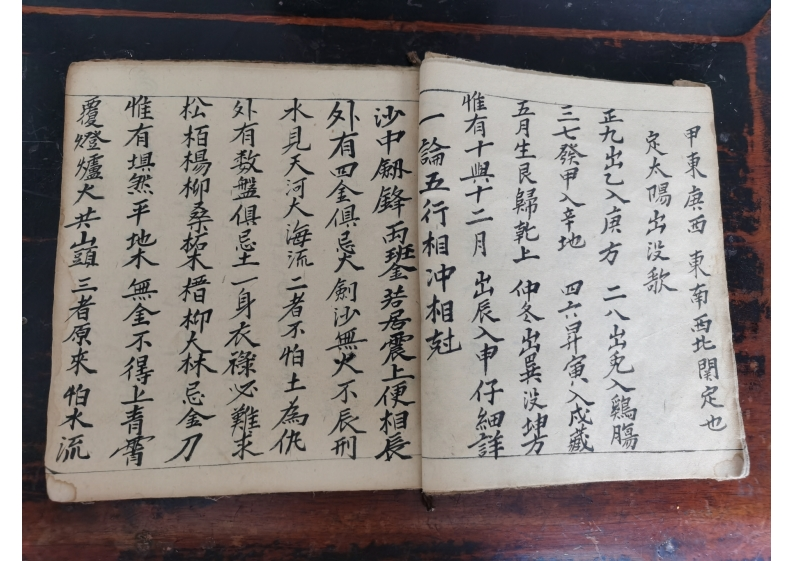 甲東庚西 東南西北関定也
定太陽出没歌
正九出乙入庚方 二八出兎入鷄腸
三七發甲入辛地 四六昇寅入戍藏
五月生艮歸乾上 仲冬出巽没坤方
惟有十與十二月 出辰入申仔細詳
一論五行相冲相尅
沙中劔鋒兩班金若居震上便相長
外有四金俱忌火 劍沙無火不辰刑
水見天河大海流 二者不怕土為仇
外有数盤俱忌土一身衣祿必難求
松栢楊柳桑柘木榗柳大林忌金刀
惟有埧然平地木 無金不得上青霄
覆燈爐火共山頭 三者原來怕水流